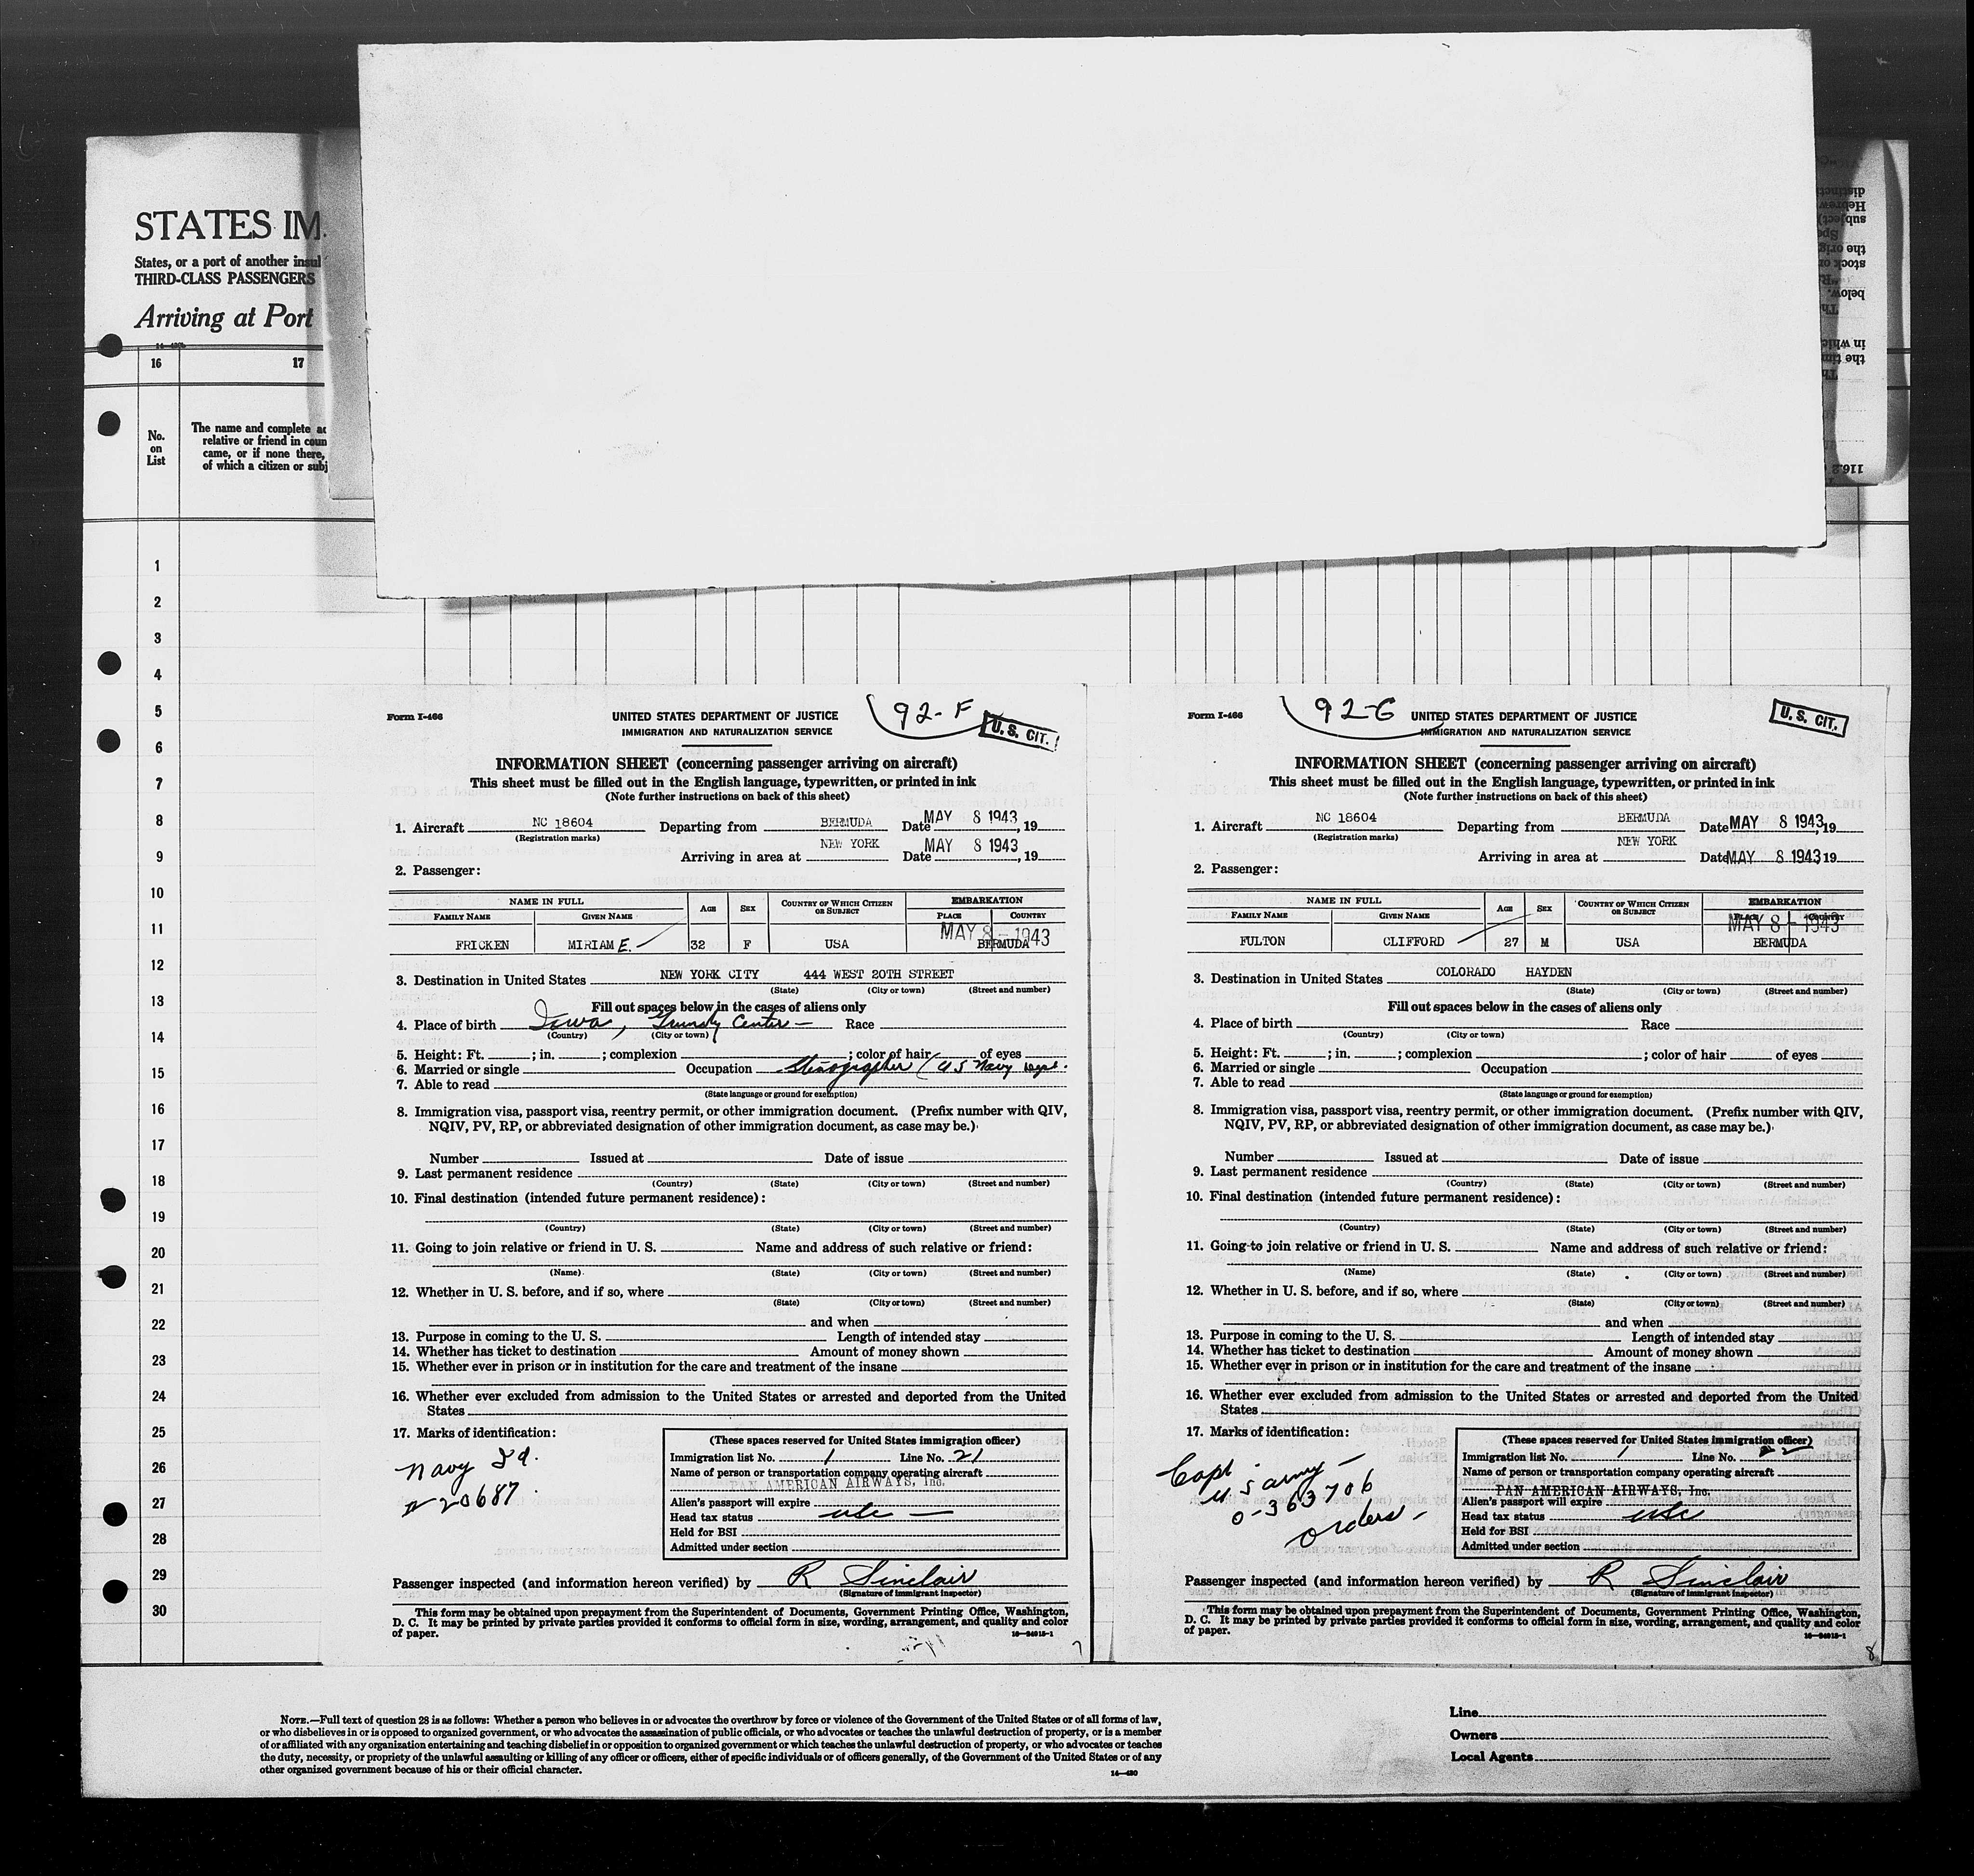 STATES IM
States, or a port of another insul
THIRD-CLASS PASSENGERS
Arriving at Port
16 17
No. on List
The name and complete ad
relative or friend in coun
came, or if none there,
of which a citizen or subj
1
2
3
4
5
6
7
8
9
10
11
12
13
14
15
16
17
18
19
20
21
22
23
24
25
26
27
28
29
30
Form I-466
92-F
U. S. CIT.
UNITED STATES DEPARTMENT OF JUSTICE
IMMIGRATION AND NATURALIZATION SERVICE
INFORMATION SHEET (concerning passenger arriving on aircraft)
This sheet must be filled out in the English language, typewritten, or printed in ink
(Note further instructions on back of this sheet)
1. Aircraft NC 18604 Departing from BERMUDA Date MAY 8 1943, 19
(Registration marks)
Arriving in area at NEW YORK Date MAY 8 1943, 19
2. Passenger:
NAME IN FULL AGE SEX COUNTRY OF WHICH CITIZEN OR SUBJECT EMBARKATION
FAMILY NAME GIVEN NAME PLACE COUNTRY
MAY 8 - 1943
FRICKEN MIRIAM E. 32 F USA BERMUDA
3. Destination in United States NEW YORK CITY 444 WEST 20TH STREET
(State) (City or town) (Street and number)
Fill out spaces below in the cases of aliens only
4. Place of birth Iowa, Grundy Center - Race
(Country) (City or town)
5. Height: Ft. ; in. ; complexion ; color of hair of eyes
6. Married or single Occupation Stenographer (U S Navy Dept.
7. Able to read
(State language or ground for exemption)
8. Immigration visa, passport visa, reentry permit, or other immigration document. (Prefix number with QIV,
NQIV, PV, RP, or abbreviated designation of other immigration document, as case may be.)
Number Issued at Date of issue
9. Last permanent residence
(Country) (State) (City or town) (Street and number)
10. Final destination (intended future permanent residence):
(Country) (State) (City or town) (Street and number)
11. Going to join relative or friend in U. S. Name and address of such relative or friend:
(Name) (State) (City or town) (Street and number)
12. Whether in U. S. before, and if so, where
(State) (City or town) (Street and number)
and when
13. Purpose in coming to the U. S. Length of intended stay
14. Whether has ticket to destination Amount of money shown
15. Whether ever in prison or in institution for the care and treatment of the insane
16. Whether ever excluded from admission to the United States or arrested and deported from the United
States
17. Marks of identification:
Navy Id.
# 20687.
(These spaces reserved for United States immigration officer)
Immigration list No. 1 Line No. 21
Name of person or transportation company operating aircraft
PAN AMERICAN AIRWAYS, Inc.
Alien's passport will expire
Head tax status usc —
Held for BSI
Admitted under section
Passenger inspected (and information hereon verified) by R Sinclair
(Signature of immigrant inspector)
This form may be obtained upon prepayment from the Superintendent of Documents, Government Printing Office, Washington,
D. C. It may be printed by private parties provided it conforms to official form in size, wording, arrangement, and quality and color
of paper.
16—24915-1
7
Form I-466
92-G
U. S. CIT.
UNITED STATES DEPARTMENT OF JUSTICE
IMMIGRATION AND NATURALIZATION SERVICE
INFORMATION SHEET (concerning passenger arriving on aircraft)
This sheet must be filled out in the English language, typewritten, or printed in ink
(Note further instructions on back of this sheet)
1. Aircraft NC 18604 Departing from BERMUDA Date MAY 8 1943, 19
(Registration marks)
Arriving in area at NEW YORK Date MAY 8 1943 19
2. Passenger:
NAME IN FULL AGE SEX COUNTRY OF WHICH CITIZEN OR SUBJECT EMBARKATION
FAMILY NAME GIVEN NAME PLACE COUNTRY
MAY 8 - 1943
FULTON CLIFFORD 27 M USA BERMUDA
3. Destination in United States COLORADO HAYDEN
(State) (City or town) (Street and number)
Fill out spaces below in the cases of aliens only
4. Place of birth Race
(Country) (City or town)
5. Height: Ft. ; in. ; complexion ; color of hair of eyes
6. Married or single Occupation
7. Able to read
(State language or ground for exemption)
8. Immigration visa, passport visa, reentry permit, or other immigration document. (Prefix number with QIV,
NQIV, PV, RP, or abbreviated designation of other immigration document, as case may be.)
Number Issued at Date of issue
9. Last permanent residence
(Country) (State) (City or town) (Street and number)
10. Final destination (intended future permanent residence):
(Country) (State) (City or town) (Street and number)
11. Going to join relative or friend in U. S. Name and address of such relative or friend:
(Name) (State) (City or town) (Street and number)
12. Whether in U. S. before, and if so, where
(State) (City or town) (Street and number)
and when
13. Purpose in coming to the U. S. Length of intended stay
14. Whether has ticket to destination Amount of money shown
15. Whether ever in prison or in institution for the care and treatment of the insane
16. Whether ever excluded from admission to the United States or arrested and deported from the United
States
17. Marks of identification:
Capt
U S army -
O-363706
orders -
(These spaces reserved for United States immigration officer)
Immigration list No. 1 Line No. 22
Name of person or transportation company operating aircraft
PAN AMERICAN AIRWAYS, Inc.
Alien's passport will expire
Head tax status usc
Held for BSI
Admitted under section
Passenger inspected (and information hereon verified) by R Sinclair
(Signature of immigrant inspector)
This form may be obtained upon prepayment from the Superintendent of Documents, Government Printing Office, Washington,
D. C. It may be printed by private parties provided it conforms to official form in size, wording, arrangement, and quality and color
of paper.
16—24915-1
8
NOTE.—Full text of question 28 is as follows: Whether a person who believes in or advocates the overthrow by force or violence of the Government of the United States or of all forms of law,
or who disbelieves in or is opposed to organized government, or who advocates the assassination of public officials, or who advocates or teaches the unlawful destruction of property, or is a member
of or affiliated with any organization entertaining and teaching disbelief in or opposition to organized government or which teaches the unlawful destruction of property, or who advocates or teaches
the duty, necessity, or propriety of the unlawful assaulting or killing of any officer or officers, either of specific individuals or of officers generally, of the Government of the United States or of any
other organized government because of his or their official character.
14—430
Line
Owners
Local Agents